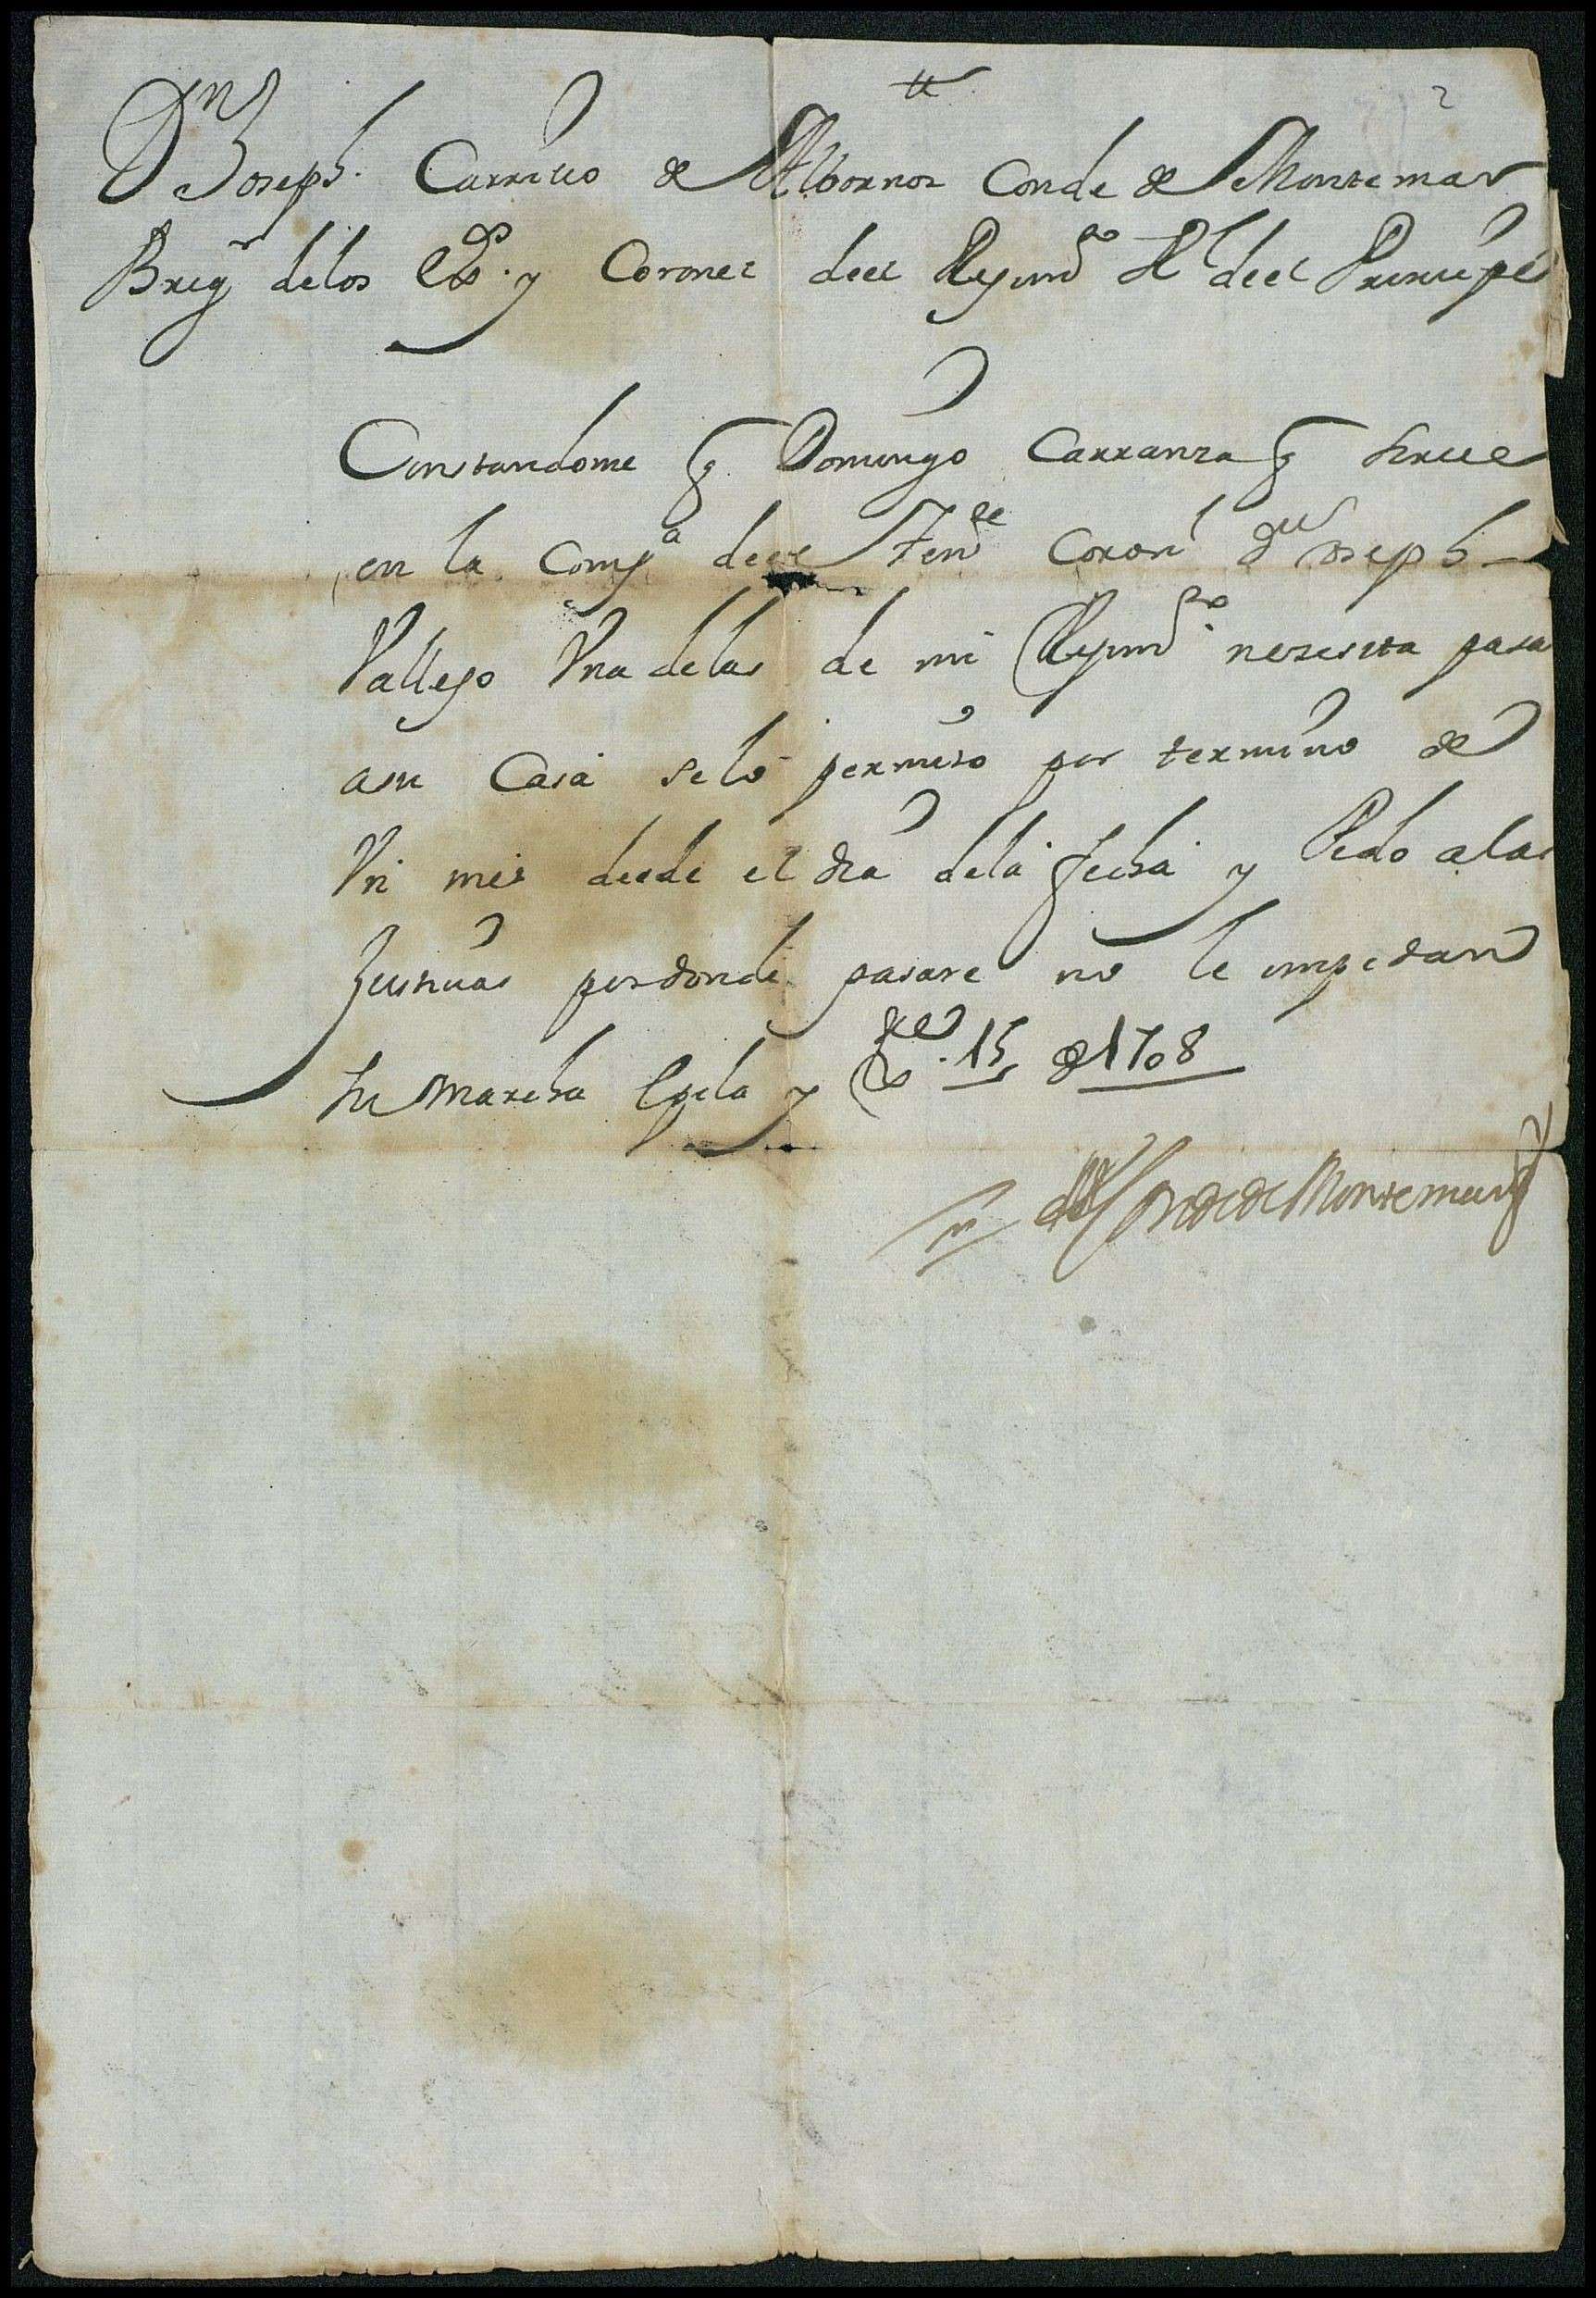 Dn Joseph Carrillo de Albornoz Conde de Montemar
Brigr delos Exos y Coronel deel Regimto Rl deel Principe
Constandome q Domingo Carranza q sirve
en la Compa deel Tente Coronl dn Joseph
Vallejo Una delas de mi Regimto nezesita pasar
asu Casa selo permito por termino de
Un mes desde el dia dela fecha y Pido alas
Justicias por donde pasare no le impidan
su marcha y 15 de 1708
el Conde de Montemar